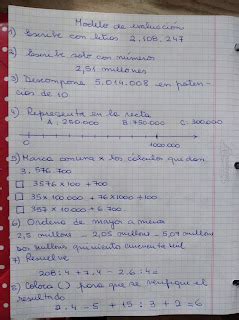 Modelo de evaluación
1) Escribe con letras 2.108.247
2) Escribe solo con números
2,51 millones
3) Descompone 5.014.008 en poten-
cias de 10
4) Representa en la recta
A. 250.000 B. 750.000 C. 300.000
0 1000000
5) Marca con una x los cálculos que dan
3.576.700
3576 x 100 + 700
35 x 100000 + 76 x 1000 + 100
357 x 10.000 + 6.700
6) Ordena de mayor a menor
2,5 millones - 2,05 millones - 5,07 millones
dos millones quinientos cincuenta mil
7) Resuelve
208 : 4 + 7.4 - 2.6 : 4 =
8) Coloca () para que se verifique el
resultado
2 . 4 - 5 + 15 : 3 + 2 = 6